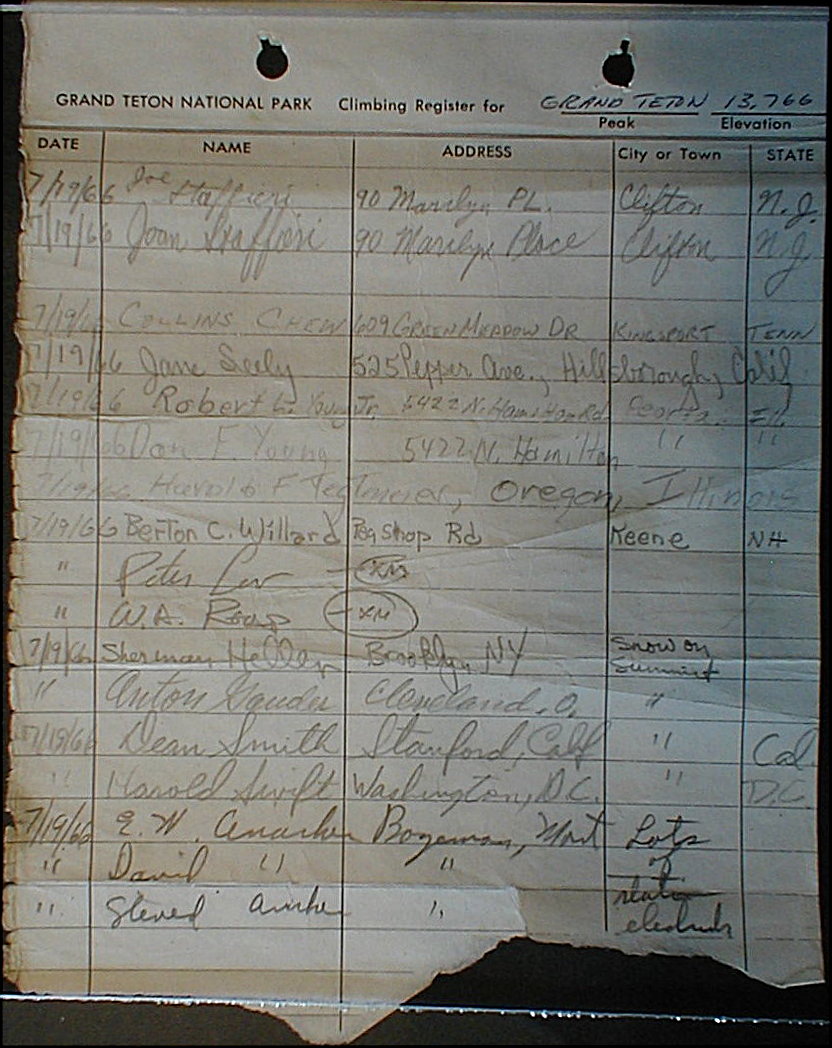 GRAND TETON NATIONAL PARK Climbing Register for GRAND TETON 13,766
Peak Elevation
DATE NAME ADDRESS City or Town STATE
7/19/66 Joe Staffieri 90 Marilyn PL. Clifton N.J.
7/19/66 Joan Staffieri 90 Marilyn Place Clifton N.J
7/19/66 COLLINS CHEW 609 GREEN MEADOW DR KINGSPORT TENN
7/19/66 Jane Seely 525 Pepper Ave., Hillsborough, Calif
7/19/66 Robert L. Young Jr. 5422 N. Hamilton Rd Peoria Ill.
7/19/66 Dan F Young 5422 N. Hamilton " "
7/19/66 Harold F Oregon, Illinois
7/19/66 Berton C. Willard Peg Shop Rd Keene NH
" Peter
" W.A.
7/19/66 Sherman Heller Brooklyn NY Snow on
Summit
" Anton Cleveland, O. "
7/19/66 Dean Smith Stanford, Calf " Cal
" Harold Swift Washington, D.C. " D.C.
7/19/66 E. W. Bozeman, Mont Lots
of
" David " "
" "